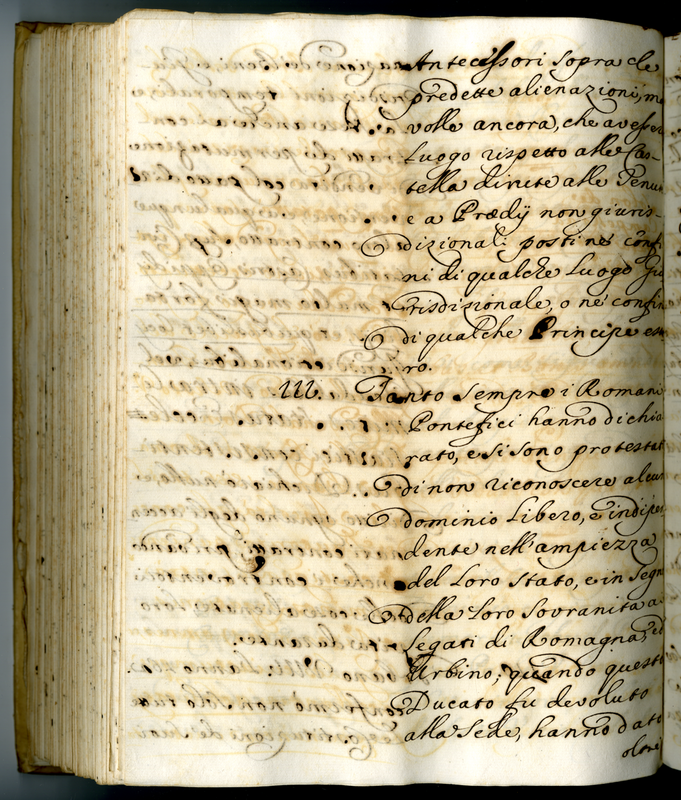 Antecessori sopra le
predette alienazioni, ma
volle ancora, che avesser
Luogo rispetto alle Cas-
tella
e a Prædij non giuris-
dizionali posti ne' confi
ni di qualche Luogo Giu
risdizionale, o ne' confin
di qualche Principe este
ro.
III. Tanto sempre i Romani
Pontefici hanno dichia
rato, e si sono protestati
di non riconoscere alcun
dominio Libero, e indipen
dente nell'ampiezza
del Loro Stato, e in segno
della Loro Sovranità a'
Legati di Romagna, ed
Urbino; quando questo
Ducato fu devoluto
alla Sede, hanno dato